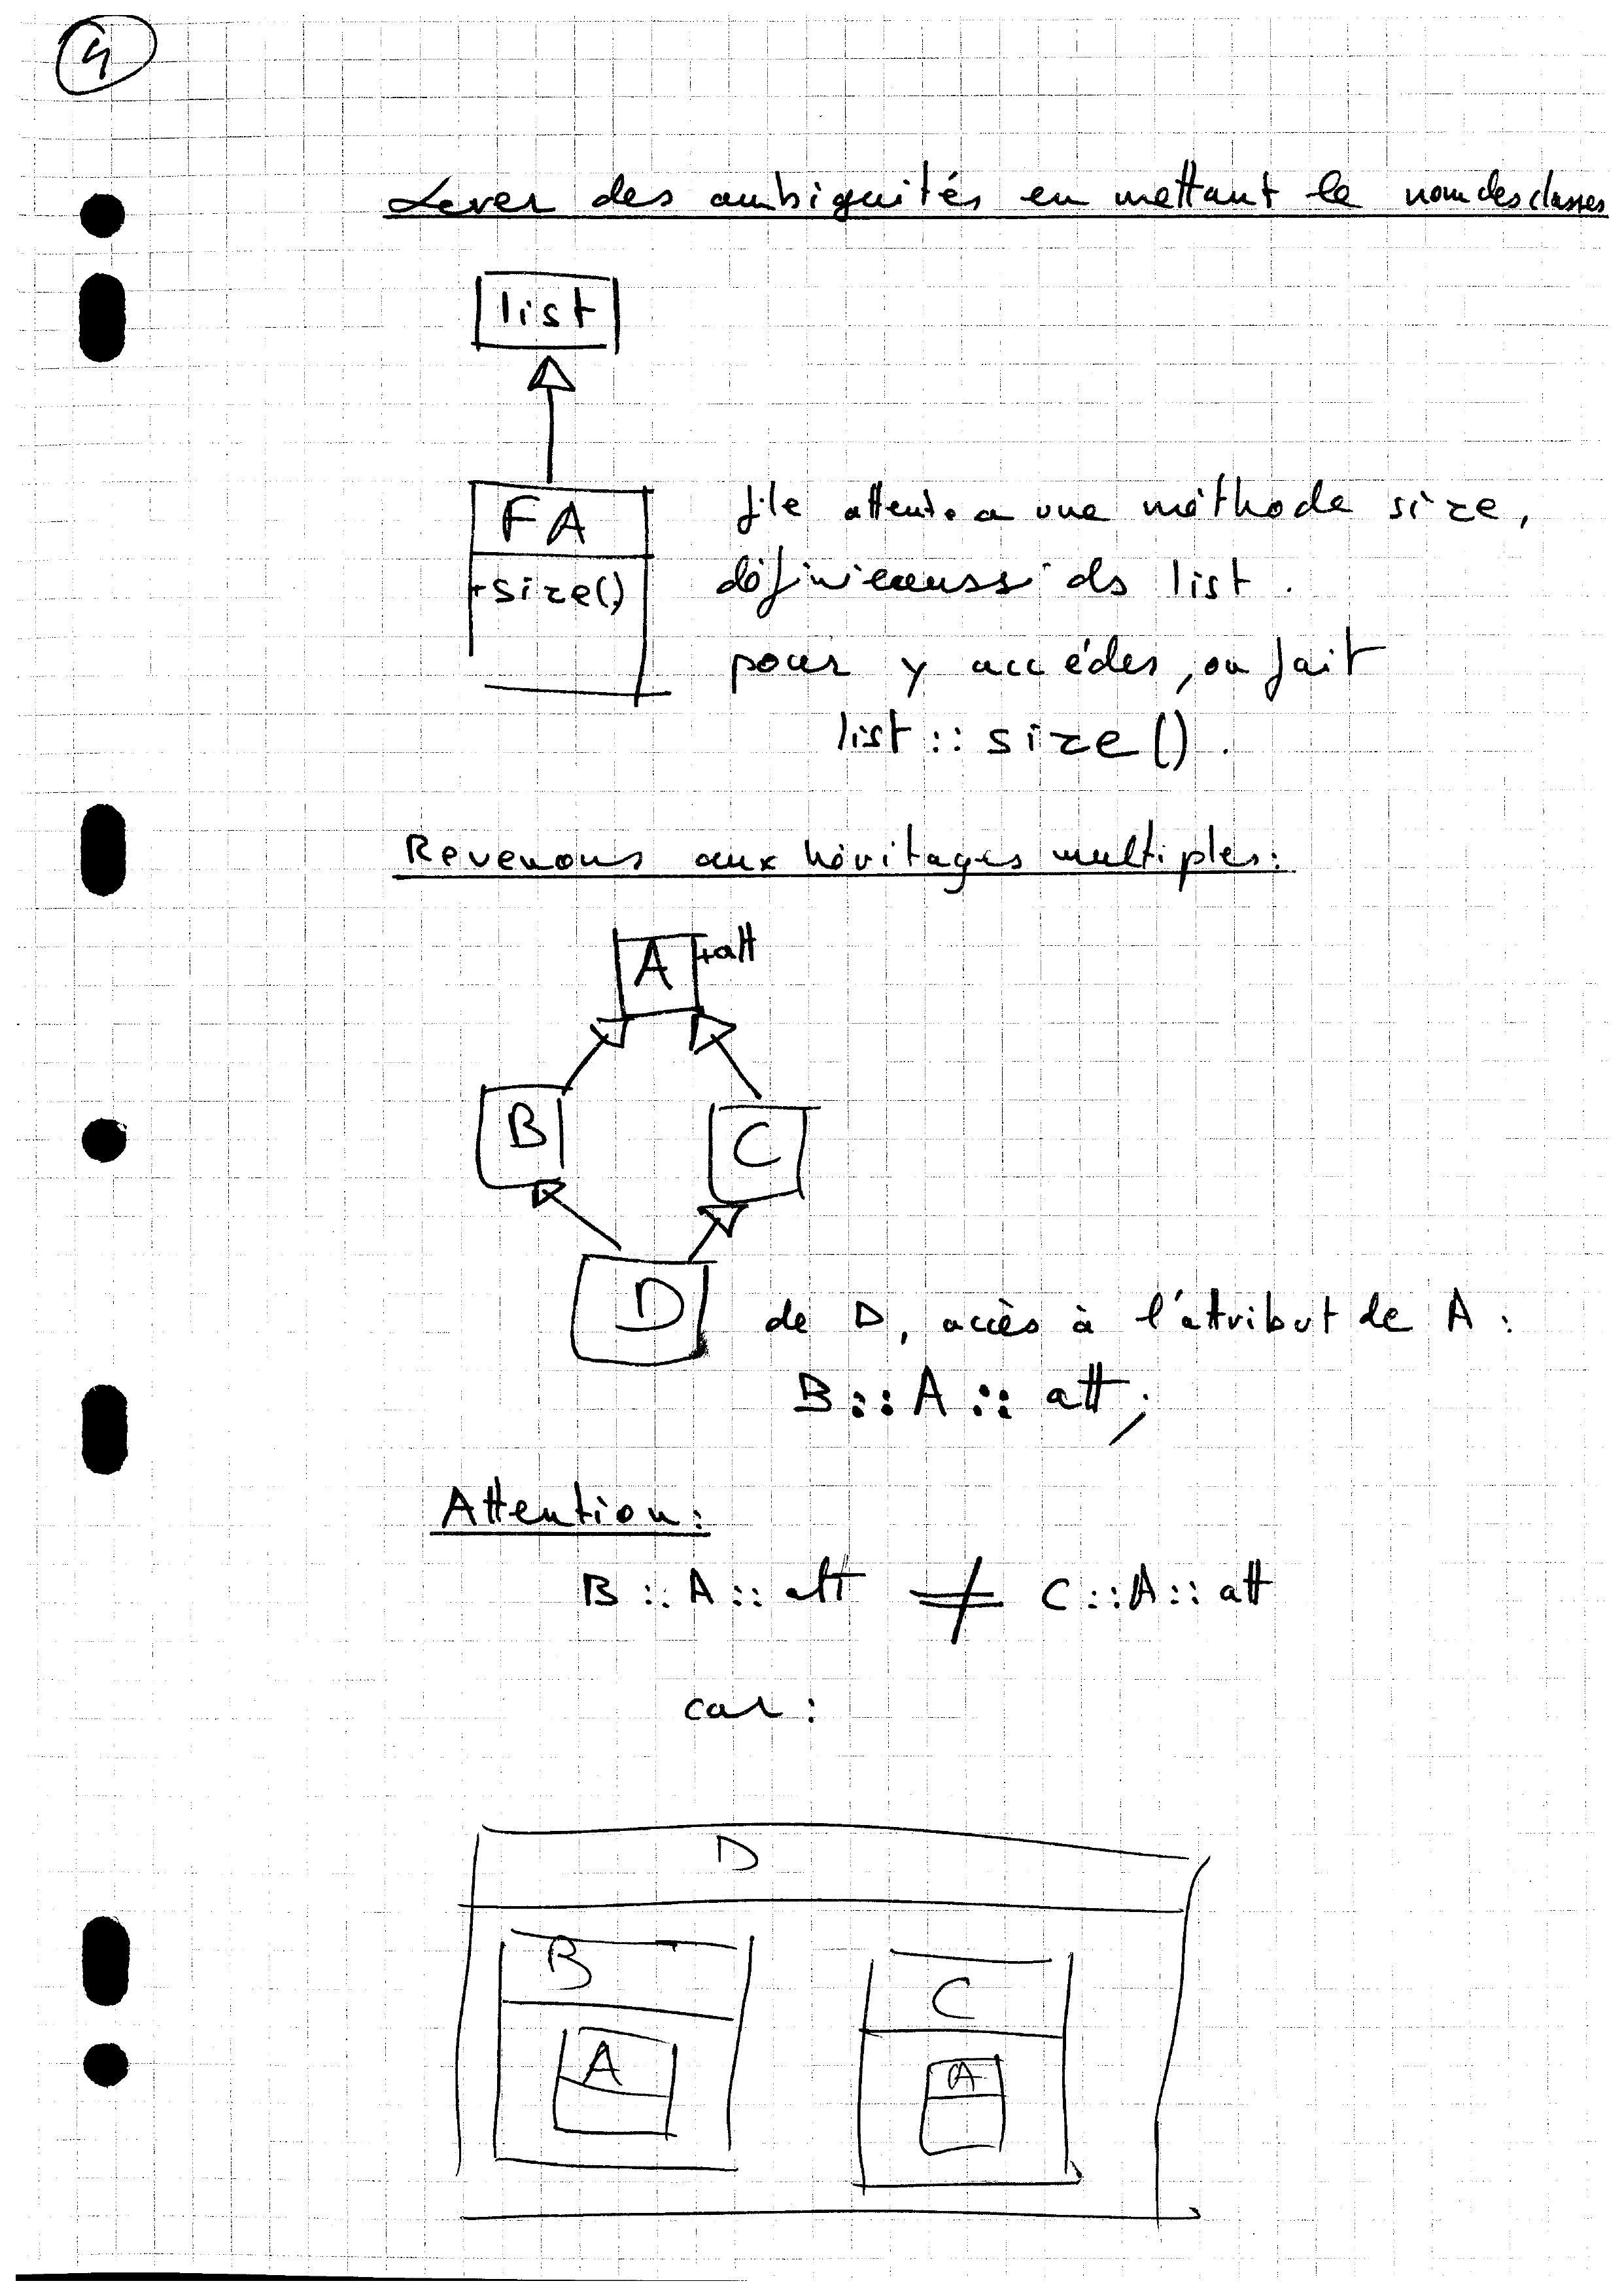 4
Lever des ambiguités en mettant le nom des classes
list
FA
+size()
file attente a une méthode size,
définie aussi ds list.
pour y accéder, on fait
list::size().
Revenons aux héritages multiples:
A +att
B
C
D
de D, accès à l'attribut de A:
B::A::att;
Attention:
B::A::att ≠ C::A::att
car:
D
B
C
A
A